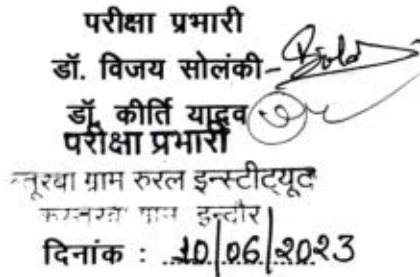 परीक्षा प्रभारी
डॉ. विजय सोलंकी-
डॉ. कीर्ति यादव
परीक्षा प्रभारी
स्तूरबा ग्राम रुरल इन्स्टीट्यूट
कस्तूरबा ग्राम इन्दौर
दिनांक : 20/06/2023